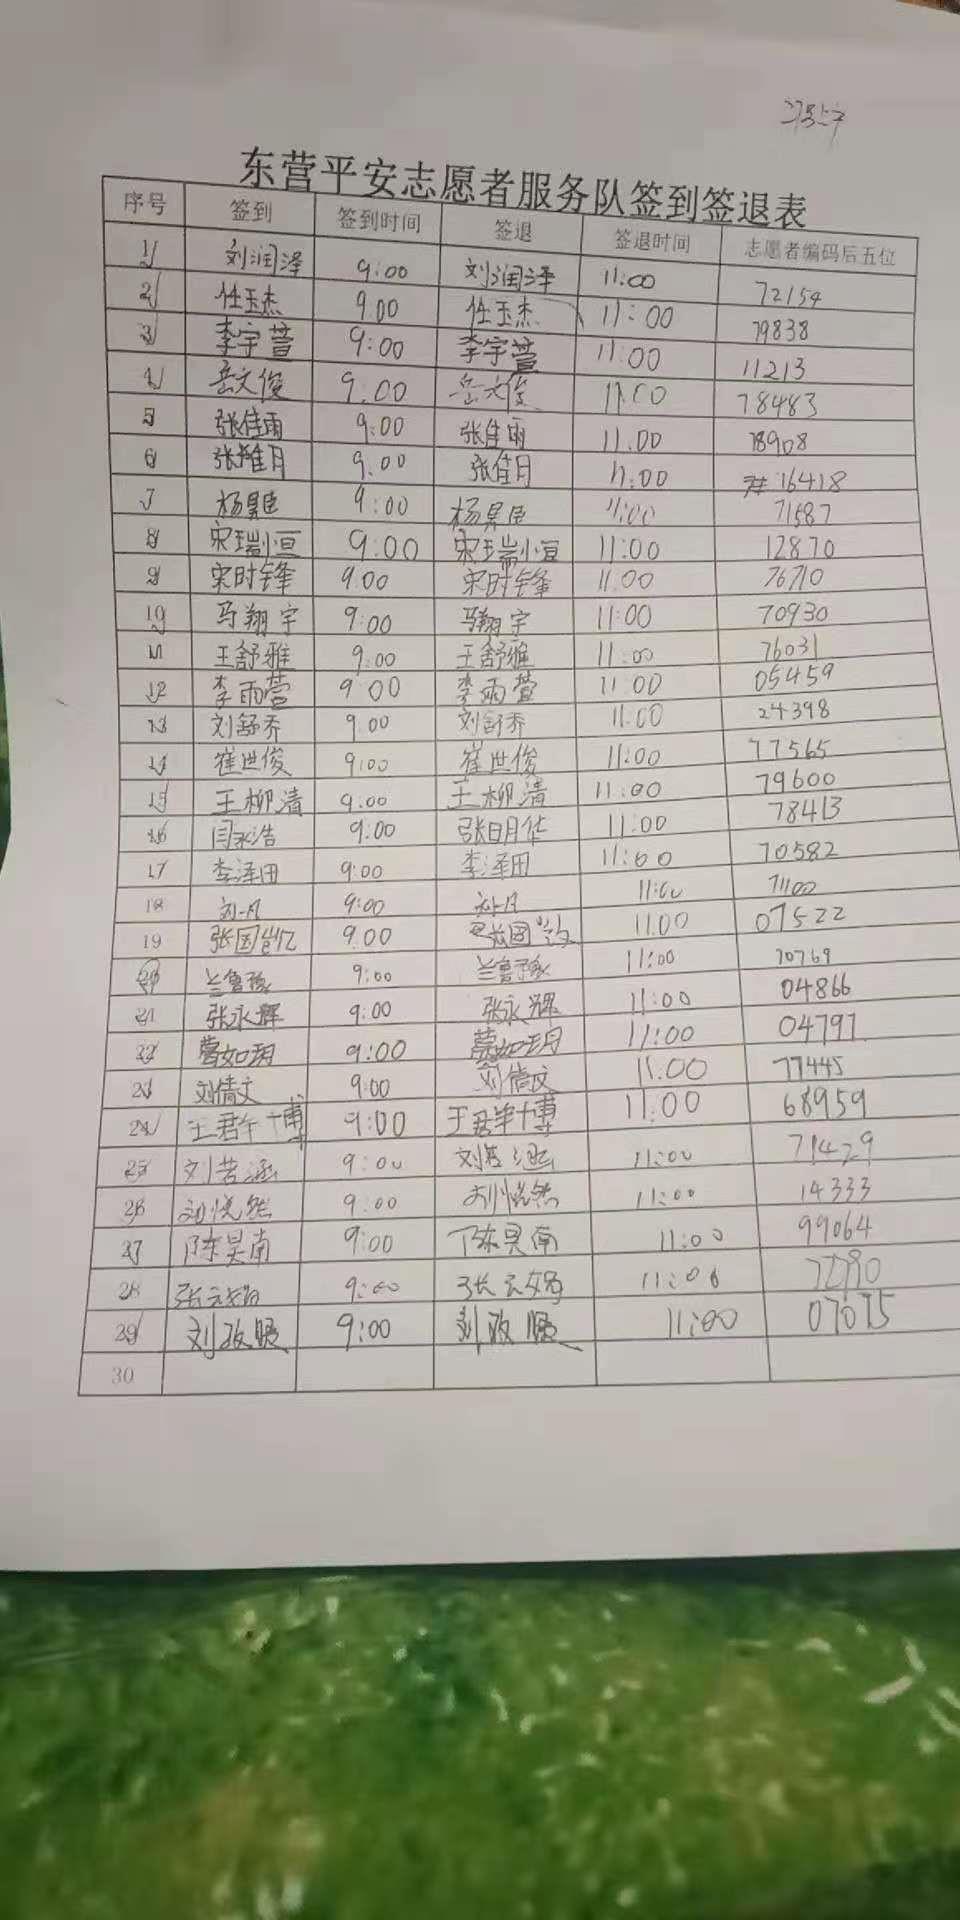 东营平安志愿者服务队签到签退表
序号 签到 签到时间 签退 签退时间 志愿者编码后五位
1 刘润泽 9:00 刘润泽 11:00 72154
2 任玉杰 9:00 任玉杰 11:00 79838
3 李宇萱 9:00 李宇萱 11:00 11213
4 岳文俊 9:00 岳文俊 11:00 78483
5 张佳雨 9:00 张佳雨 11:00 78908
6 张雅月 9:00 张佳月 11:00 16418
7 杨昊臣 9:00 杨昊臣 11:00 71587
8 宋瑞恒 9:00 宋瑞恒 11:00 12870
9 宋时锋 9:00 宋时锋 11:00 76710
10 马翔宇 9:00 马翔宇 11:00 70930
11 王舒雅 9:00 王舒雅 11:00 76031
12 李雨萱 9:00 李雨萱 11:00 05459
13 刘舒乔 9:00 刘舒乔 11:00 24398
14 崔世俊 9:00 崔世俊 11:00 77565
15 王柳清 9:00 王柳清 11:00 79600
16 闫永浩 9:00 张明华 11:00 78413
17 李泽田 9:00 李泽田 11:00 70582
18 刘一凡 9:00 11:00 71100
19 张国 9:00 张国 11:00 07522
20 兰鲁豫 9:00 兰鲁豫 11:00 70769
21 张永辉 9:00 张永辉 11:00 04866
22 如玥 9:00 如玥 11:00 04797
23 刘倩文 9:00 刘倩文 11:00 77445
24 王君 博 9:00 王君 博 11:00 68959
25 刘若涵 9:00 刘若涵 11:00 71429
26 刘悦然 9:00 刘悦然 11:00 14333
27 陈昊南 9:00 陈昊南 11:00 99064
28 张 9:00 张 11:00
29 刘政 9:00 刘政 11:00 07075
30